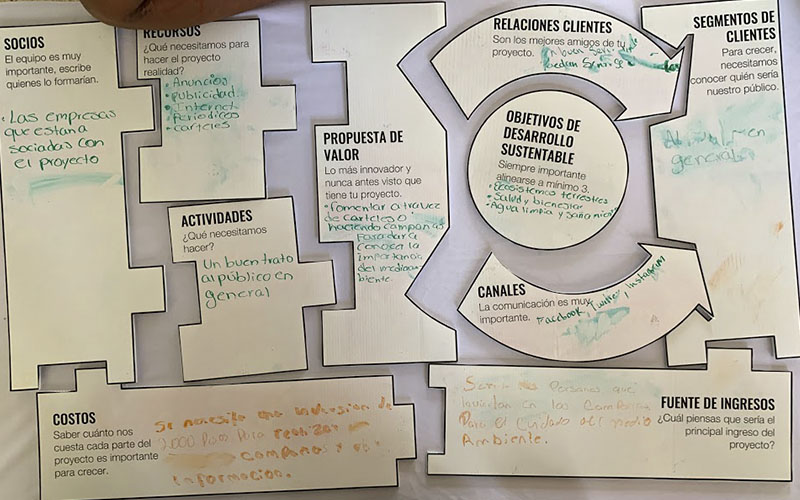 SOCIOS
El equipo es muy
importante, escribe
quienes lo formarían.
• Las empresas
que estan a
sociadas con
el proyecto
RECURSOS
¿Qué necesitamos para
hacer el proyecto
realidad?
• Anuncios
• publicidad
• Internet
• Periodicos
• carteles
ACTIVIDADES
¿Qué necesitamos
hacer?
Un buen trato
al público en
general
PROPUESTA DE
VALOR
Lo más innovador y
nunca antes visto que
tiene tu proyecto.
• fomentar a travez
de carteles o
haciendo campañas
para dar a
conocer la
importancia
del medio am
biente.
RELACIONES CLIENTES
Son los mejores amigos de tu
proyecto.
OBJETIVOS DE
DESARROLLO
SUSTENTABLE
Siempre importante
alinearse a mínimo 3.
• Ecosistemas terrestres
• Salud y bienestar
• Agua limpia y
CANALES
La comunicación es muy
importante.
Facebook, Twitter, Instagram
SEGMENTOS DE
CLIENTES
Para crecer,
necesitamos
conocer quién sería
nuestro público.
en
general
COSTOS
Saber cuánto nos
cuesta cada parte del
proyecto es importante
para crecer.
Se necesita una inversion de
para realizar
campañas y
informacion.
FUENTE DE INGRESOS
¿Cuál piensas que sería el
principal ingreso del
proyecto?
personas que
en las campañas
Para el cuidado del medio
Ambiente.